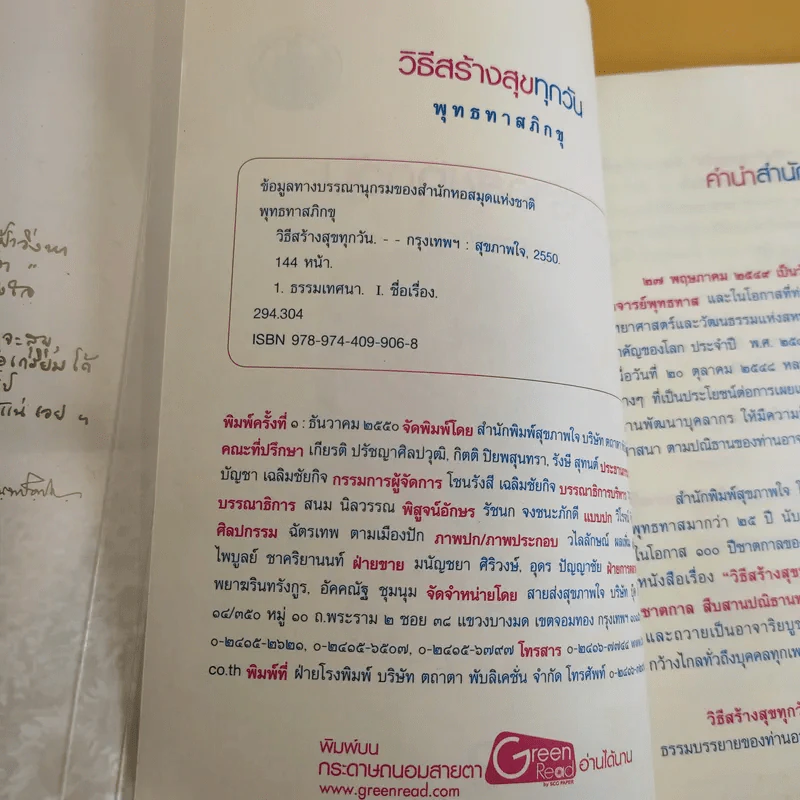 วิธีสร้างสุขทุกวัน
พุทธทาสภิกขุ
ข้อมูลทางบรรณานุกรมของสำนักหอสมุดแห่งชาติ
พุทธทาสภิกขุ
วิธีสร้างสุขทุกวัน. - - กรุงเทพฯ : สุขภาพใจ, 2550.
144 หน้า.
1. ธรรมเทศนา. I. ชื่อเรื่อง.
294.304
ISBN 978-974-409-906-8
พิมพ์ครั้งที่ ๑ : ธันวาคม ๒๕๕๐ จัดพิมพ์โดย สำนักพิมพ์สุขภาพใจ บริษัท ตถาตา
คณะที่ปรึกษา เกียรติ ปรัชญาศิลปวุฒิ, กิตติ ปิยพสุนทรา, รังษี สุทนต์
บัญชา เฉลิมชัยกิจ กรรมการผู้จัดการ โชนรังสี เฉลิมชัยกิจ บรรณาธิการบริหาร
บรรณาธิการ สนม นิลวรรณ พิสูจน์อักษร รัชนก จงชนะภักดี แบบปก
ศิลปกรรม ฉัตรเทพ ตามเมืองปัก ภาพปก/ภาพประกอบ วไลลักษณ์
ไพบูลย์ ชาคริยานนท์ ฝ่ายขาย มนัญชยา ศิริวงษ์, อุดร ปัญญาชัย
พยาฆรินทรังกูร, อัคคณัฐ ชุมนุม จัดจำหน่ายโดย สายส่งสุขภาพใจ บริษัท
๑๔/๓๕๐ หมู่ ๑๐ ถ.พระราม ๒ ซอย ๓๘ แขวงบางมด เขตจอมทอง กรุงเทพฯ
๐-๒๔๑๕-๒๖๒๑, ๐-๒๔๑๕-๖๕๐๗, ๐-๒๔๑๕-๖๗๙๗ โทรสาร ๐-๒๔๑๖-๗๗๔๔
co.th พิมพ์ที่ ฝ่ายโรงพิมพ์ บริษัท ตถาตา พับลิเคชั่น จำกัด โทรศัพท์
พิมพ์บน
กระดาษถนอมสายตา Green Read อ่านได้นาน
by SCG PAPER
www.greenread.com
คำนำสำนัก
๒๗ พฤษภาคม ๒๕๔๙ เป็น
อาจารย์พุทธทาส และในโอกาสที่
ทยาศาสตร์และวัฒนธรรมแห่งสห
คัญของโลก ประจำปี พ.ศ.
่อวันที่ ๒๐ ตุลาคม ๒๕๔๘
างๆ ที่เป็นประโยชน์ต่อการเผย
านพัฒนาบุคลากร ให้มีความ
าสนา ตามปณิธานของท่านอา
สำนักพิมพ์สุขภาพใจ
พุทธทาสมากว่า ๒๕ ปี
ในโอกาส ๑๐๐ ปีชาตกาลของ
หนังสือเรื่อง "วิธีสร้างสุข
ชาตกาล สืบสานปณิธาน
และถวายเป็นอาจาริยบู
กว้างไกลทั่วถึงบุคคลทุกเพ
วิธีสร้างสุขทุกวั
ธรรมบรรยายของท่านอา